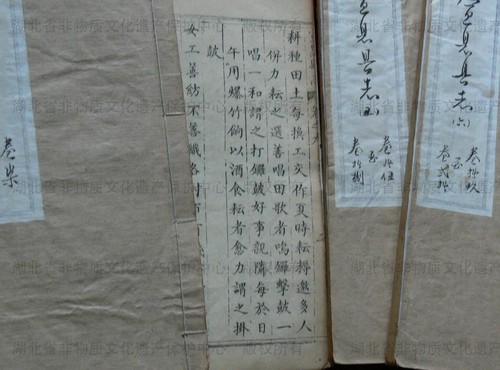 宣恩县志(六)
卷拾玖
至
恩县志(五)
卷拾伍
至
卷拾捌
耕種田土每換工交作夏時耘耨邀多人
併力耘之選善唱田歌者鳴鑼擊皷一
唱一和謂之打鑼皷好事親隣每於日
午用爆竹餉以酒食耘者愈力謂之掛
皷
女工善紡不善織各
卷柒
湖北省非物质文化遗产保护中心 版权所有
湖北省非物质文化遗产保护中心 版权所有